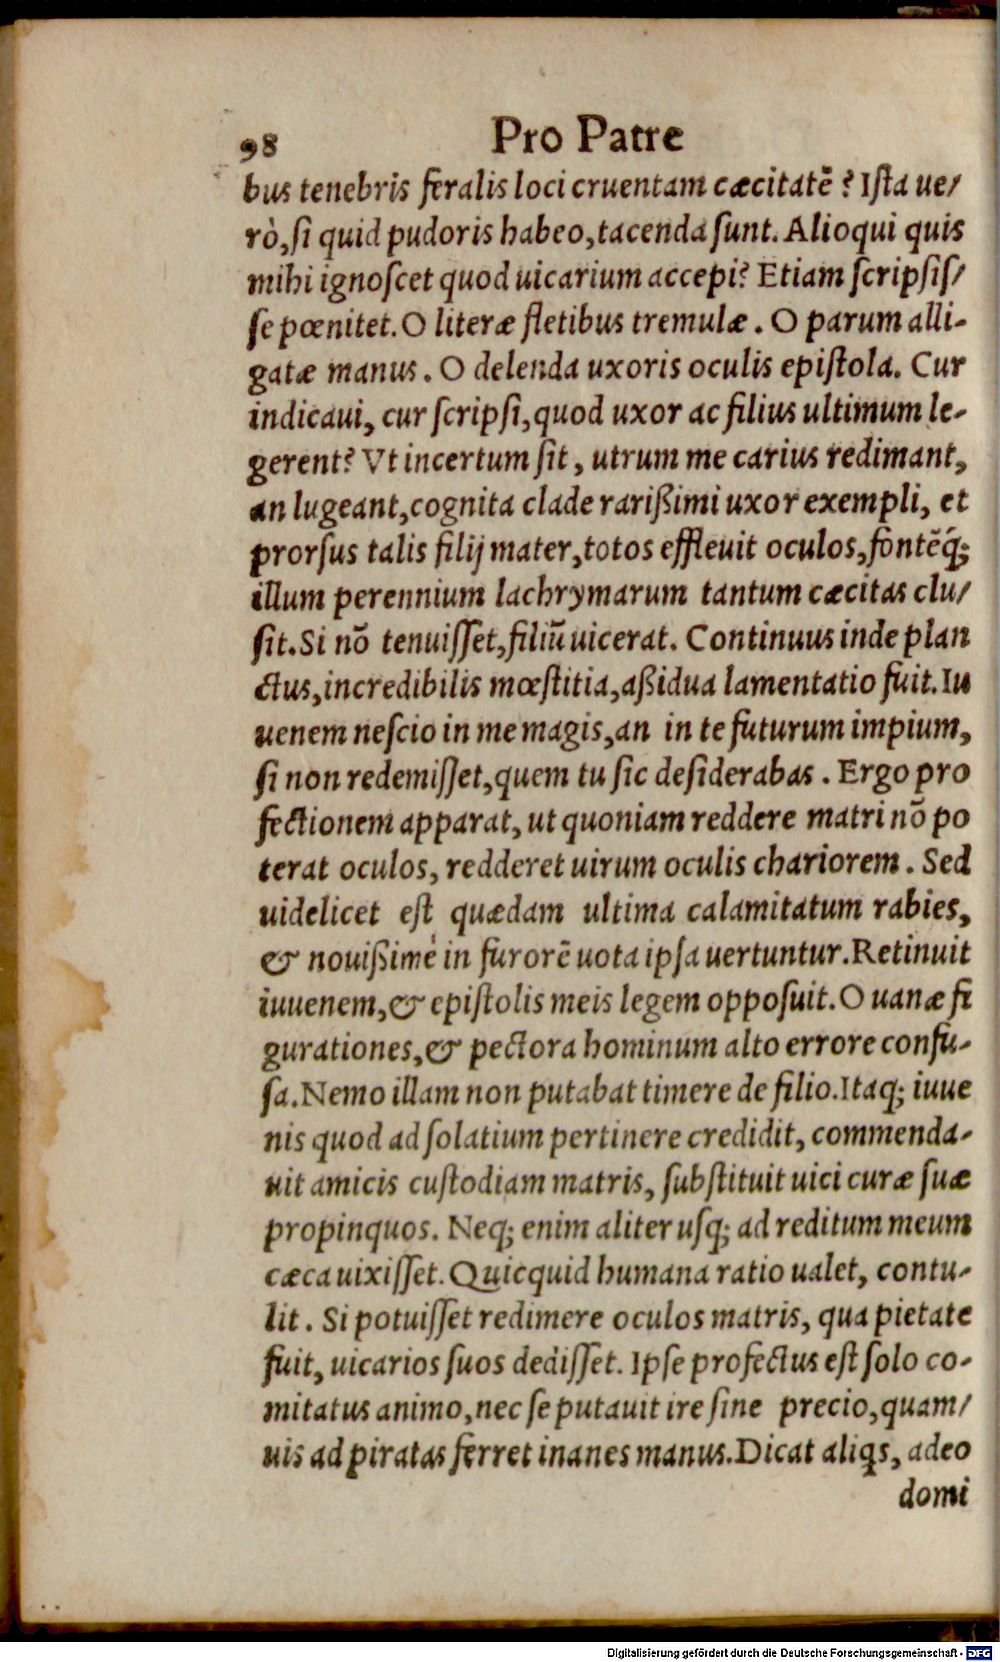 98 Pro Patre
bus tenebris feralis loci cruentam cæcitatē? Ista ue/
rò, si quid pudoris habeo, tacenda sunt. Alioqui quis
mihi ignoscet quod uicarium accepi? Etiam scripsis/
se pœnitet. O literæ fletibus tremulæ. O parum alli-
gatæ manus. O delenda uxoris oculis epistola. Cur
indicaui, cur scripsi, quod uxor ac filius ultimum le-
gerent? Vt incertum sit, utrum me carius redimant,
an lugeant, cognita clade rarißimi uxor exempli, et
prorsus talis filij mater, totos effleuit oculos, fontēq́;
illum perennium lachrymarum tantum cæcitas clu/
sit. Si nō tenuisset, filiū uicerat. Continuus inde plan
ctus, incredibilis mœstitia, aßidua lamentatio fuit. Iu
uenem nescio in me magis, an in te futurum impium,
si non redemisset, quem tu sic desiderabas. Ergo pro
fectionem apparat, ut quoniam reddere matri nō po
terat oculos, redderet uirum oculis chariorem. Sed
uidelicet est quædam ultima calamitatum rabies,
& nouißimè in furorē uota ipsa uertuntur. Retinuit
iuuenem, & epistolis meis legem opposuit. O uanæ fi
gurationes, & pectora hominum alto errore confu-
sa. Nemo illam non putabat timere de filio. Itaq; iuue
nis quod ad solatium pertinere credidit, commenda-
uit amicis custodiam matris, substituit uici curæ suæ
propinquos. Neq; enim aliter usq; ad reditum meum
cæca uixisset. Quicquid humana ratio ualet, contu-
lit. Si potuisset redimere oculos matris, qua pietate
fuit, uicarios suos dedisset. Ipse profectus est solo co-
mitatus animo, nec se putauit ire sine precio, quam/
uis ad piratas ferret inanes manus. Dicat aliqs, adeo
domi
Digitalisierung gefördert durch die Deutsche Forschungsgemeinschaft - DFG